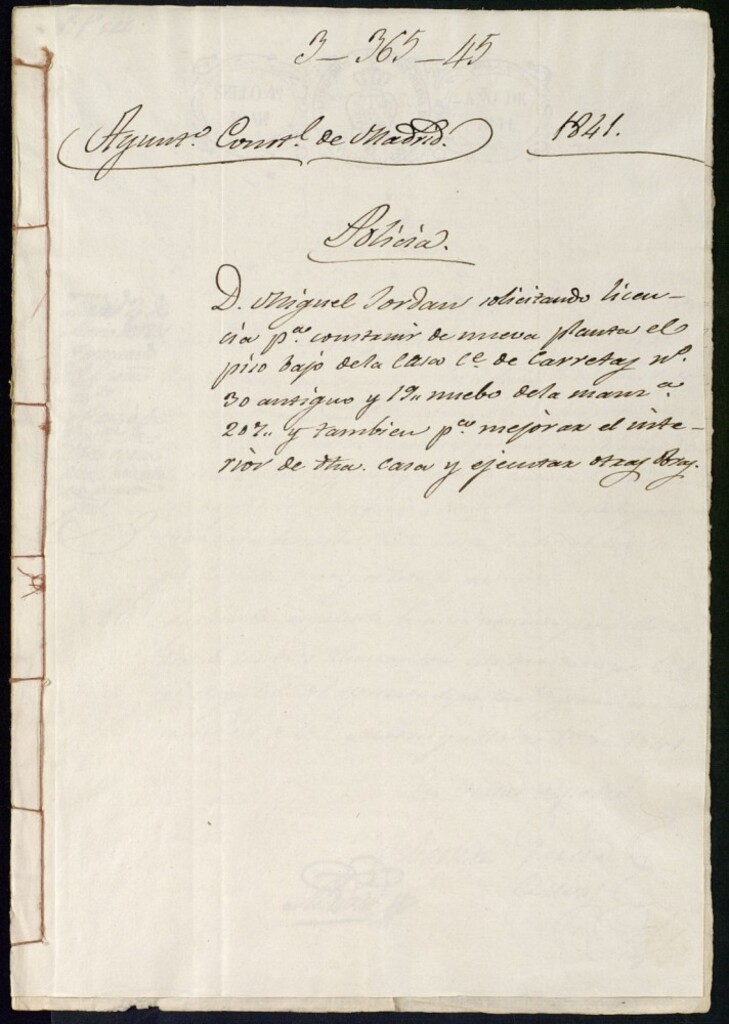 3-365-45
Ayunto. Constl. de Madrid. 1841.
Policia.
D. Miguel Jordan solicitando licen-
cia pa. construir de nueva planta el
piso bajo dela Casa Ce. de Carretas no.
30 antiguo y 19,, nuebo dela manza.
207,, y tambien pa. mejorar el inte-
rior de dha. casa y ejecutar otras obras.